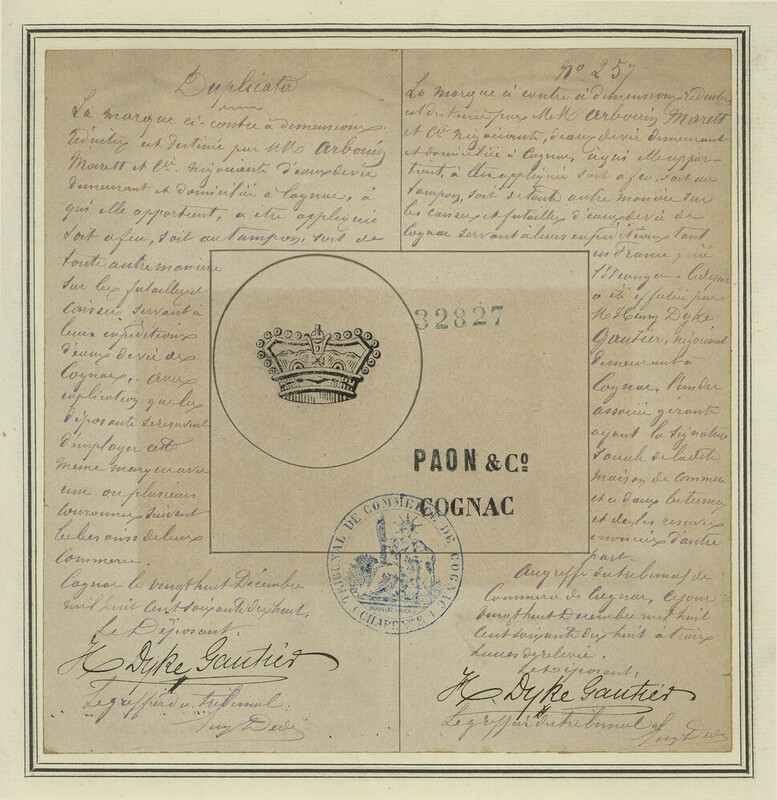 Duplicata
La marque ci-contre à dimensions
réduites est destinée par MM Arbouin
Marett et Cie négociants d'eaux de vie
demeurant et domiciliés à Cognac, à
qui elle appartient, a etre appliquée
soit a feu, soit au tampon, soit de
toute autre maniere
sur les futailles
caisses servant à
leurs expéditions
d'eaux de vie de
Cognac, avec
explication que les
déposants se réservent
d'employer cette
même marque avec
une ou plusieurs
couronnes suivant
les besoins de leur
Commerce.
Cognac le vingt huit Décembre
mil huit cent soixante dix huit,
Le Déposant.
H Dyke Gautier
Le greffier du tribunal:
No 257
La marque ci contre à dimensions réduites
est destinée par MM Arbouin Marett
et Cie négociants, d'eaux de vie demeurant
et domiciliés à Cognac, à qui elle appar-
tient, à être appliquée soit a feu, soit au
tampon, soit de toute autre manière sur
les caisses et futailles d'eaux de vie de
Cognac servant à leurs expéditions tant
en France qu'à
l'étranger.
a été effectué par
M Henry Dyke
Gautier, négociant
demeurant à
Cognac, l'un des
associés gérants
ayant la signature
sociale de la dite
maison de commerce
et a deux
et des réserves
énoncées d'autre
part.
Au greffe du tribunal de
Commerce de Cognac, ce jour
vingt huit Décembre mil huit
cent soixante dix huit à trois
heures de relevée.
Le Déposant,
H. Dyke Gautier
Le greffier du tribunal
32827
PAON & Co
COGNAC
TRIBUNAL DE COMMERCE DE COGNAC
(CHARENTE)